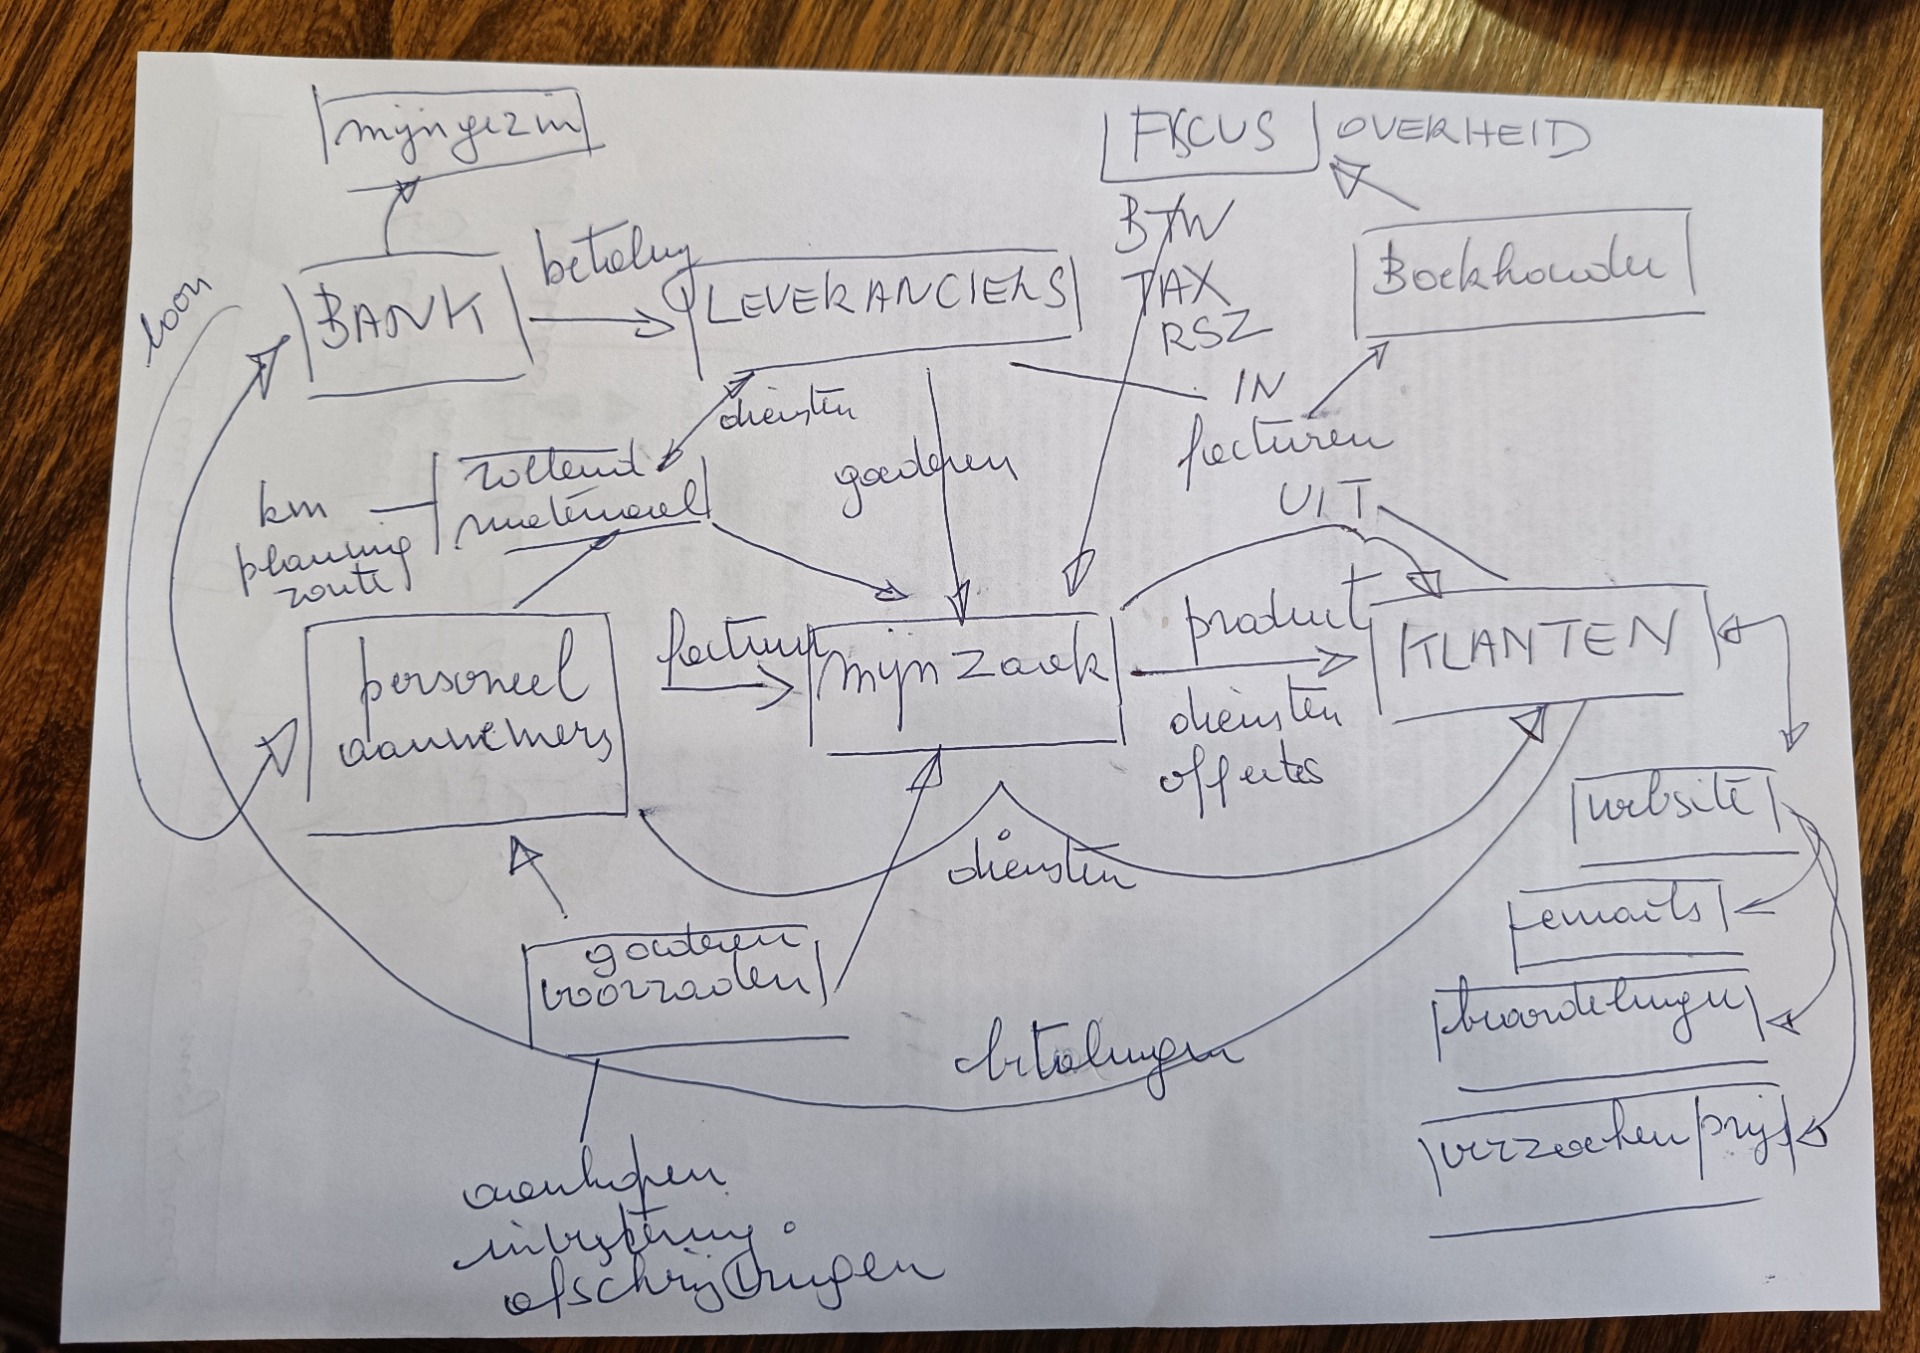 mijn gezin
FISCUS OVERHEID
BTW
TAX
RSZ
Boekhouder
loon
BANK
betaling
LEVERANCIERS
IN
facturen
UIT
diensten
goederen
km
planning
route
rollend
materiaal
personeel
aannemers
facturen
mijn zaak
product
diensten
offertes
KLANTEN
website
emails
beoordelingen
verzoeken prijs
diensten
goederen
voorraden
betalingen
aankopen
investering
afschrijvingen